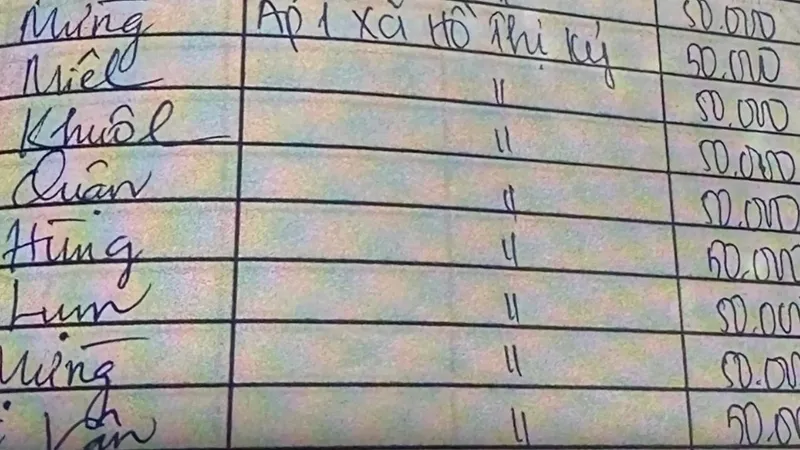 Mừng Ấp 1 xã Hồ Thị Kỷ 50.000
Miêl 〃 50.000
Khuôl 〃 50.000
Quân 〃 50.000
Hùng 〃 50.000
Lum 〃 50.000
Mừng 〃 50.000
Vân 〃 50.0